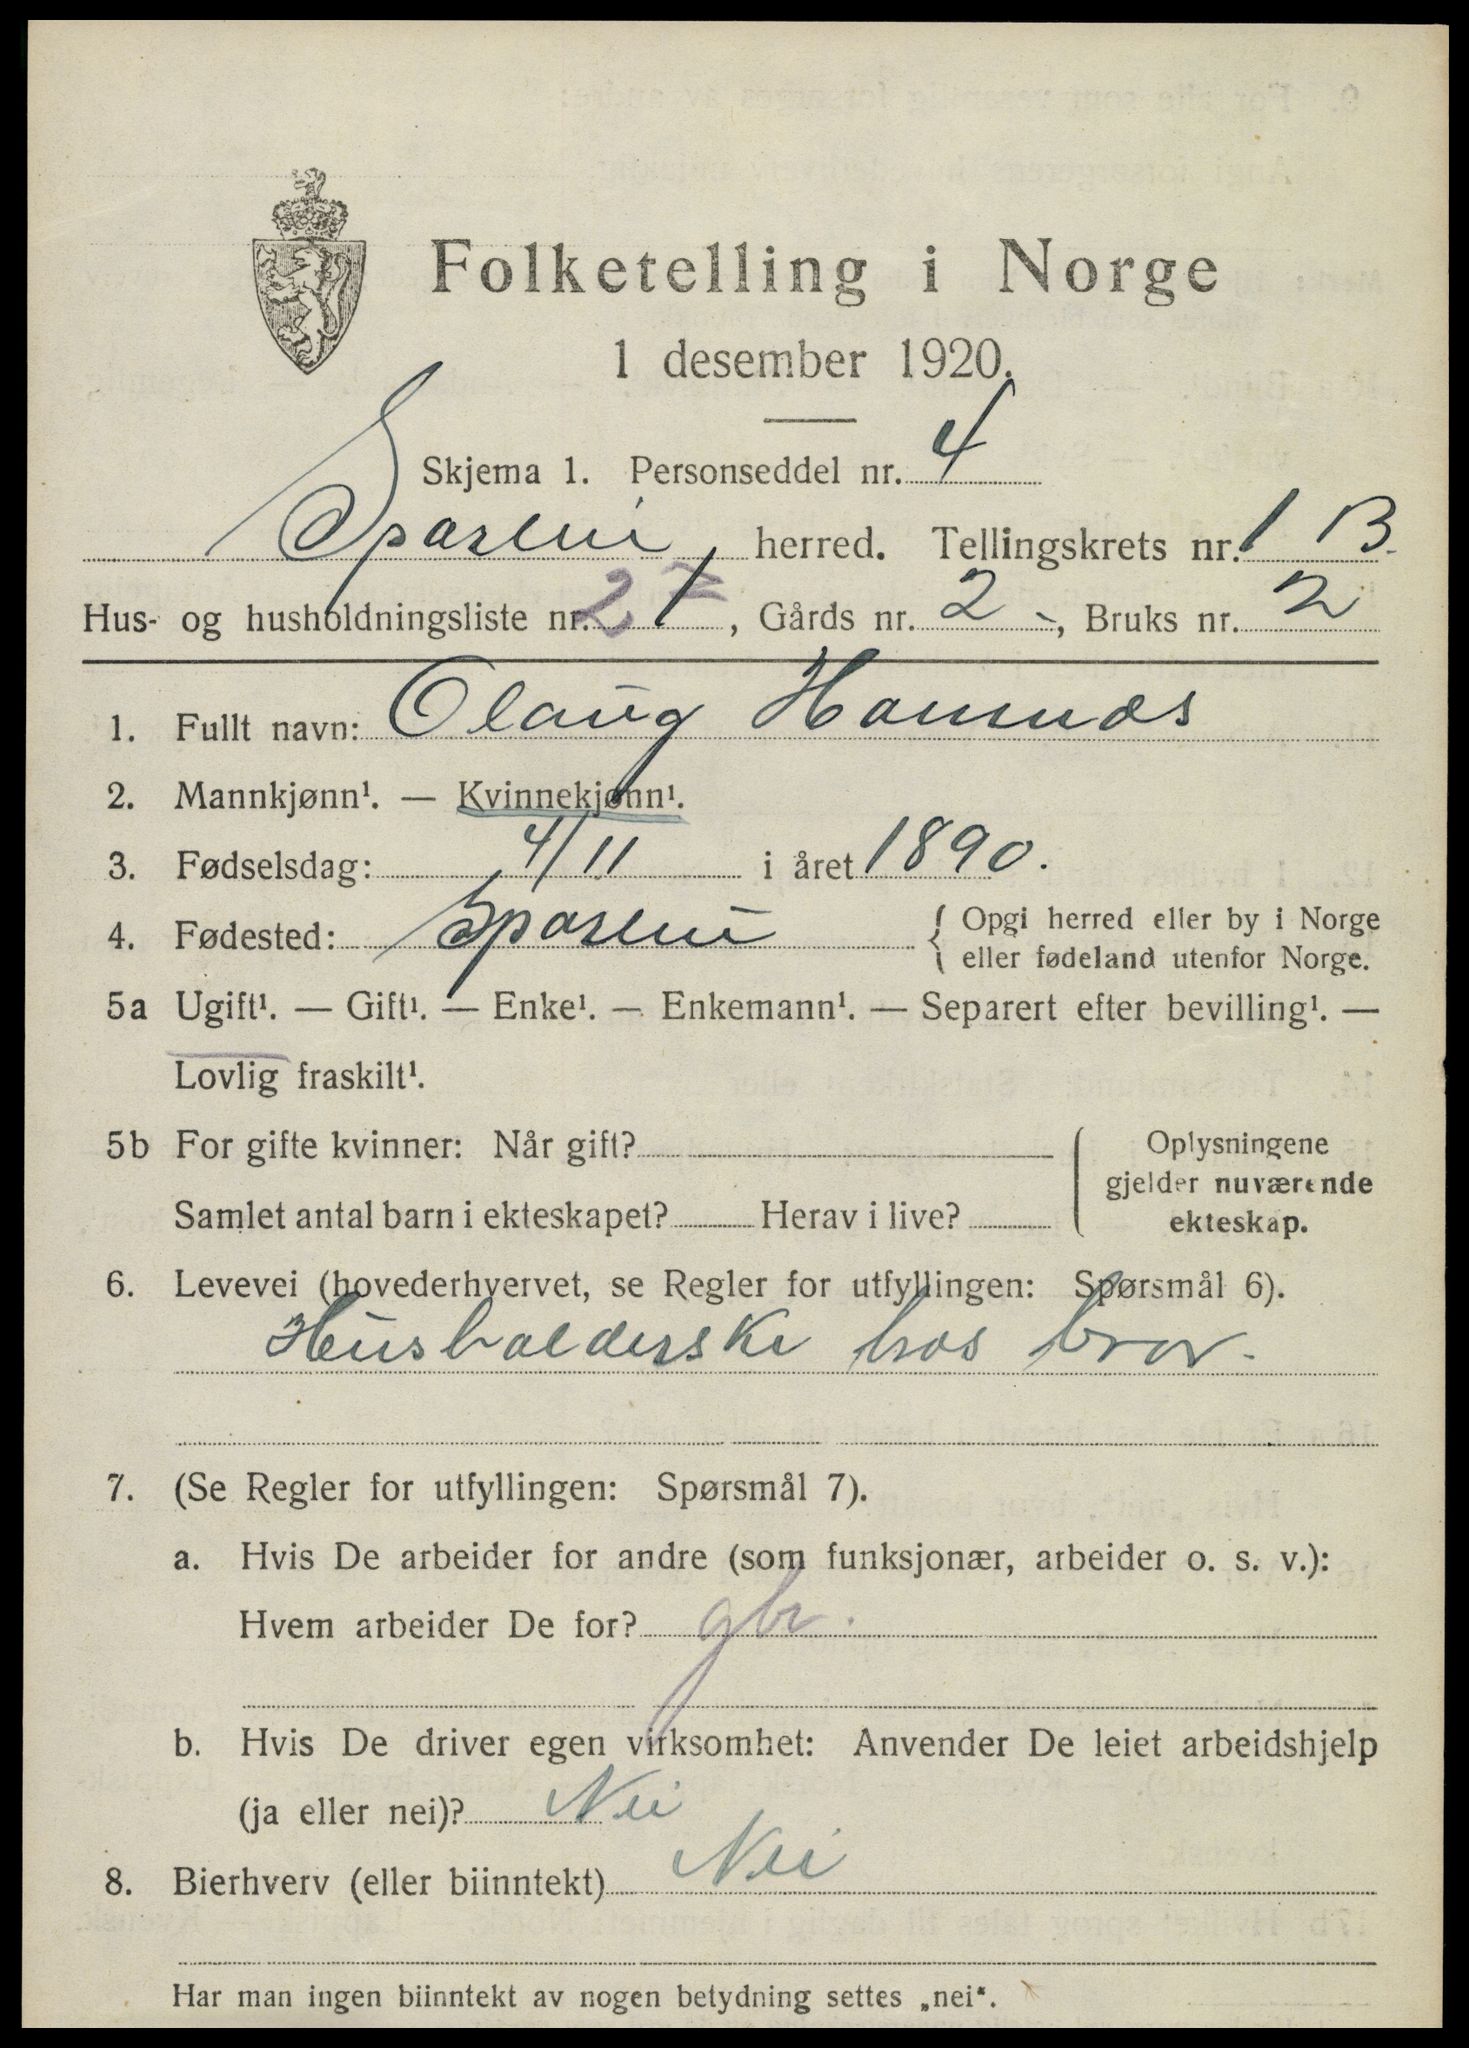 Folketelling i Norge
1 desember 1920.
Skjema 1. Personseddel nr. 4
Sparbu herred. Tellingskrets nr. 1 B.
Hus- og husholdningsliste nr. 27, Gårds nr. 2 -, Bruks nr. 2
1. Fullt navn: Olaug Hamnes
2. Mannkjønn¹. — Kvinnekjønn¹.
3. Fødselsdag: 4/11 i året 1890.
4. Fødested: { Opgi herred eller by i Norge
eller fødeland utenfor Norge.
5a Ugift¹. — Gift¹. — Enke¹. — Enkemann¹. — Separert efter bevilling¹. —
Lovlig fraskilt¹.
5b For gifte kvinner: Når gift? Oplysningene
gjelder nuværende
Samlet antal barn i ekteskapet? Herav i live? ekteskap.
6. Levevei (hovederhvervet, se Regler for utfyllingen: Spørsmål 6).
Husholderske hos bror.
7. (Se Regler for utfyllingen: Spørsmål 7).
a. Hvis De arbeider for andre (som funksjonær, arbeider o. s. v.):
Hvem arbeider De for? gbr.
b. Hvis De driver egen virksomhet: Anvender De leiet arbeidshjelp
(ja eller nei)? Nei
8. Bierhverv (eller biinntekt) Nei
Har man ingen biinntekt av nogen betydning settes „nei".